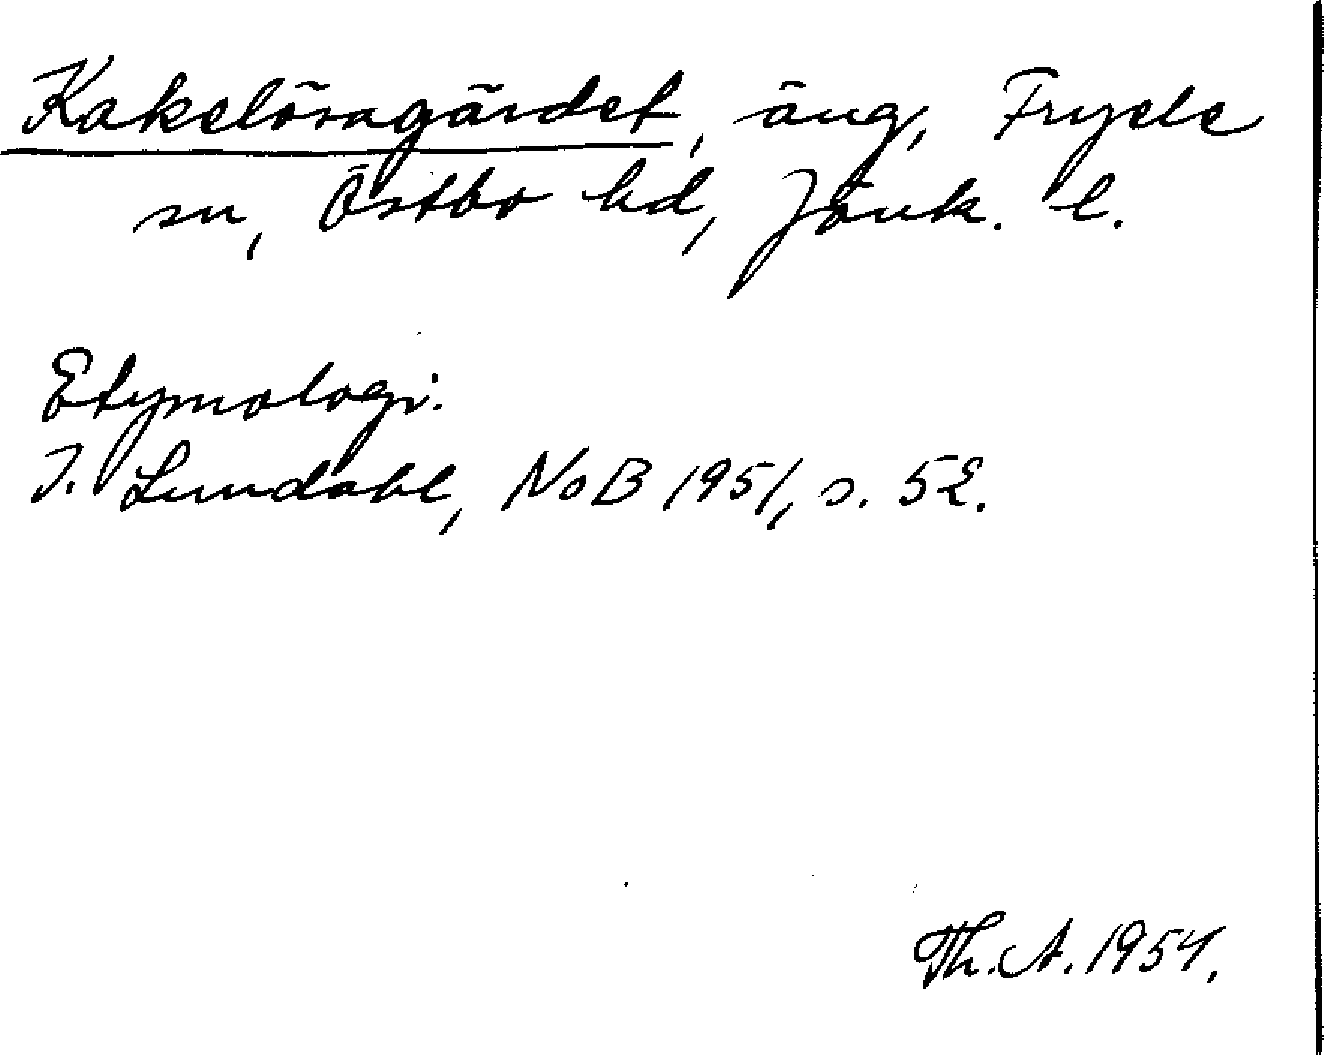 Kakelösagärdet, äng, Fryele
sn, Östbo hd, Jönk. l.
Etymologi:
I. Lundahl, NoB 1951, s. 52.
Th. A. 1954.